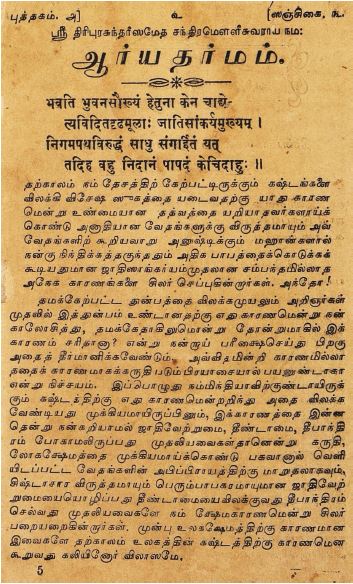 புத்தகம். அ] உ [ஸஞ்சிகை, ந.
ஸ்ரீ திரிபுரசுந்தரீஸமேத சந்த்ரமௌளீசுவராய நம:
ஆர்யதர்மம்.
भवति भुवनसौख्यं हेतुना केन चाद्ये-
त्यविदितदृढमूलाः जातिसांकर्यमुख्यम् ।
निगमपथविरुद्धं साधु संगर्हितं यत्
तदिह बहु निदानं पाषदं केचिदाहुः ॥
தற்காலம் நம் தேசத்திற் கேற்பட்டிருக்கும் கஷ்டங்களை
விலக்கி விசேஷ ஸுகத்தை யடைவதற்கு யாது காரண
மென்று உண்மையான தத்வத்தை யறியாதவர்களாய்க்
கொண்டு அனாதியான வேதங்களுக்கு விருத்தமாயும் அவ்
வேதங்களிற் கூறியவாறு அனுஷ்டிக்கும் மஹான்களால்
நன்கு நிந்திக்கத்தகுந்ததும் அதிக பாபத்தைக்கொடுக்கக்
கூடியதுமான ஜாதிஸாங்கர்யம்முதலான சம்பந்தமில்லாத
அநேக காரணங்களை சிலர் செப்புகின்றார்கள். அந்தோ!
தமக்கேற்பட்ட துன்பத்தை விலக்கமுயலும் அறிஞர்கள்
முதலில் இத்துன்பம் உண்டானதற்கு எது காரணமென்று நன்
காலோசித்து, தமக்கேதாகிலுமொன்று தோன்றுமாகில் இக்
காரணம் சரிதானா? என்று நன்குப் பரீக்ஷைசெய்து பிறகு
அதைத் தீர்மானிக்கவேண்டும். அவ்விதமின்றி காரணமில்லா
ததைக் காரணமாகக்கருதி படும்பிரயாசையால் பயனுண்டாகா
என்று நிச்சயம். இப்பொழுது நம்மிந்தியாவிற்குண்டாயிருக்
கும் கஷ்டத்திற்கு எது காரணமென்றறிந்து அதை விலக்க
வேண்டியது முக்கியமாயிருப்பினும், இக்காரணத்தை இன்ன
தென்று நன்கறியாமல் ஜாதிவேற்றுமை, தீண்டாமை, தீபாந்தி
ரம் போகாமலிருப்பது முதலியவைகள்தானென்று கருதி,
லோகக்ஷேமத்தை முக்கியமாய்க்கொண்டு பகவானால் வெளி
யிடப்பட்ட வேதங்களின் அபிப்பிராயத்திற்கு மாறுதலாகவும்,
சிஷ்டாசார விருத்தமாயும் பெரும்பாபகரமாயுமான ஜாதிவேற்
றுமையையொழிப்பது தீண்டாமையைவிலக்குவது தீபாந்திரம்
செல்வது முதலியவைகளே நம் க்ஷேமகாரணமென்று சிலர்
பறையறைகின்றார்கள். முன்பு உலகக்ஷேமத்திற்கு காரணமான
இவைகளே தற்காலம் உலகத்தின் கஷ்டத்திற்கு காரணமென
கூறுவது கலியினோர் விலாஸமே.
5